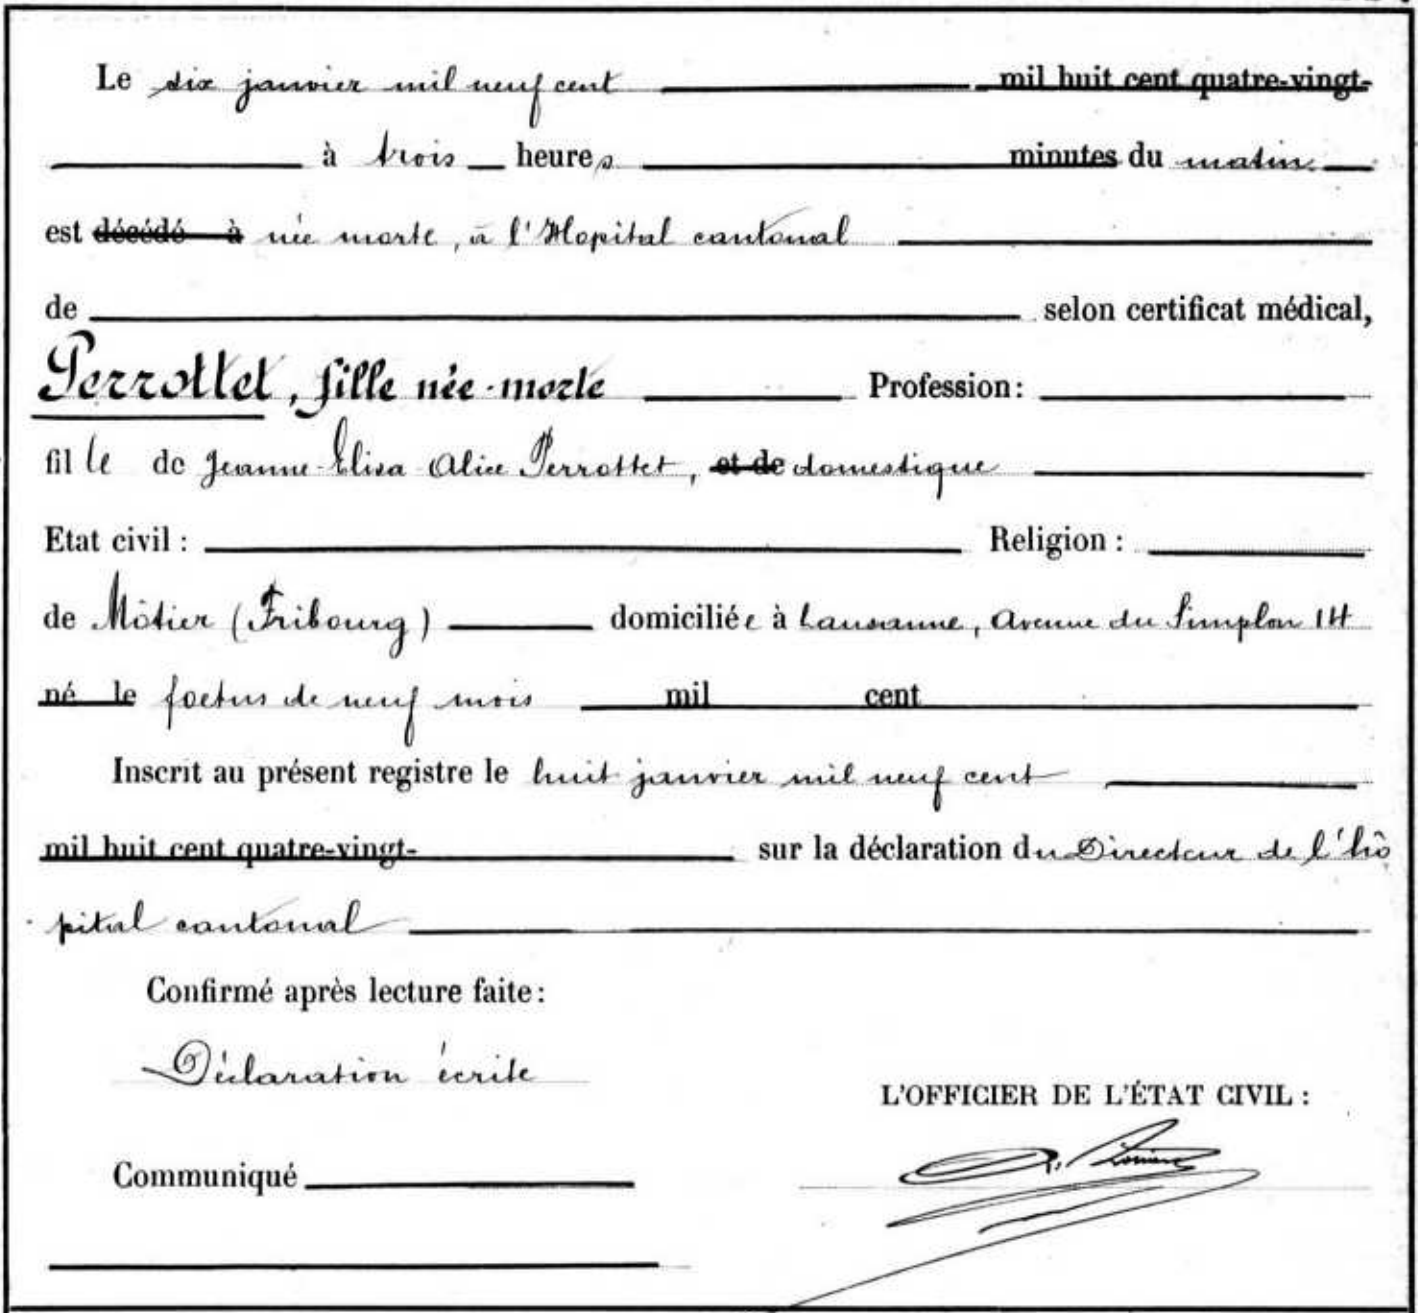 Le six janvier mil neuf cent mil huit cent quatre-vingt-
à trois heures minutes du matin
est décédé à née morte, à l'Hopital cantonal
de selon certificat médical,
Perrottet, fille née-morte Profession:
fille de Jeanne-Elisa Alice Perrottet, et de domestique
Etat civil : Religion :
de Môtier (Fribourg) domiciliée à Lausanne, Avenue du Simplon 14
né le foetus de neuf mois mil cent
Inscrit au présent registre le huit janvier mil neuf cent
mil huit cent quatre-vingt- sur la déclaration du Directeur de l'hô
pital cantonal
Confirmé après lecture faite :
Déclaration écrite
L'OFFICIER DE L'ÉTAT CIVIL :
Communiqué